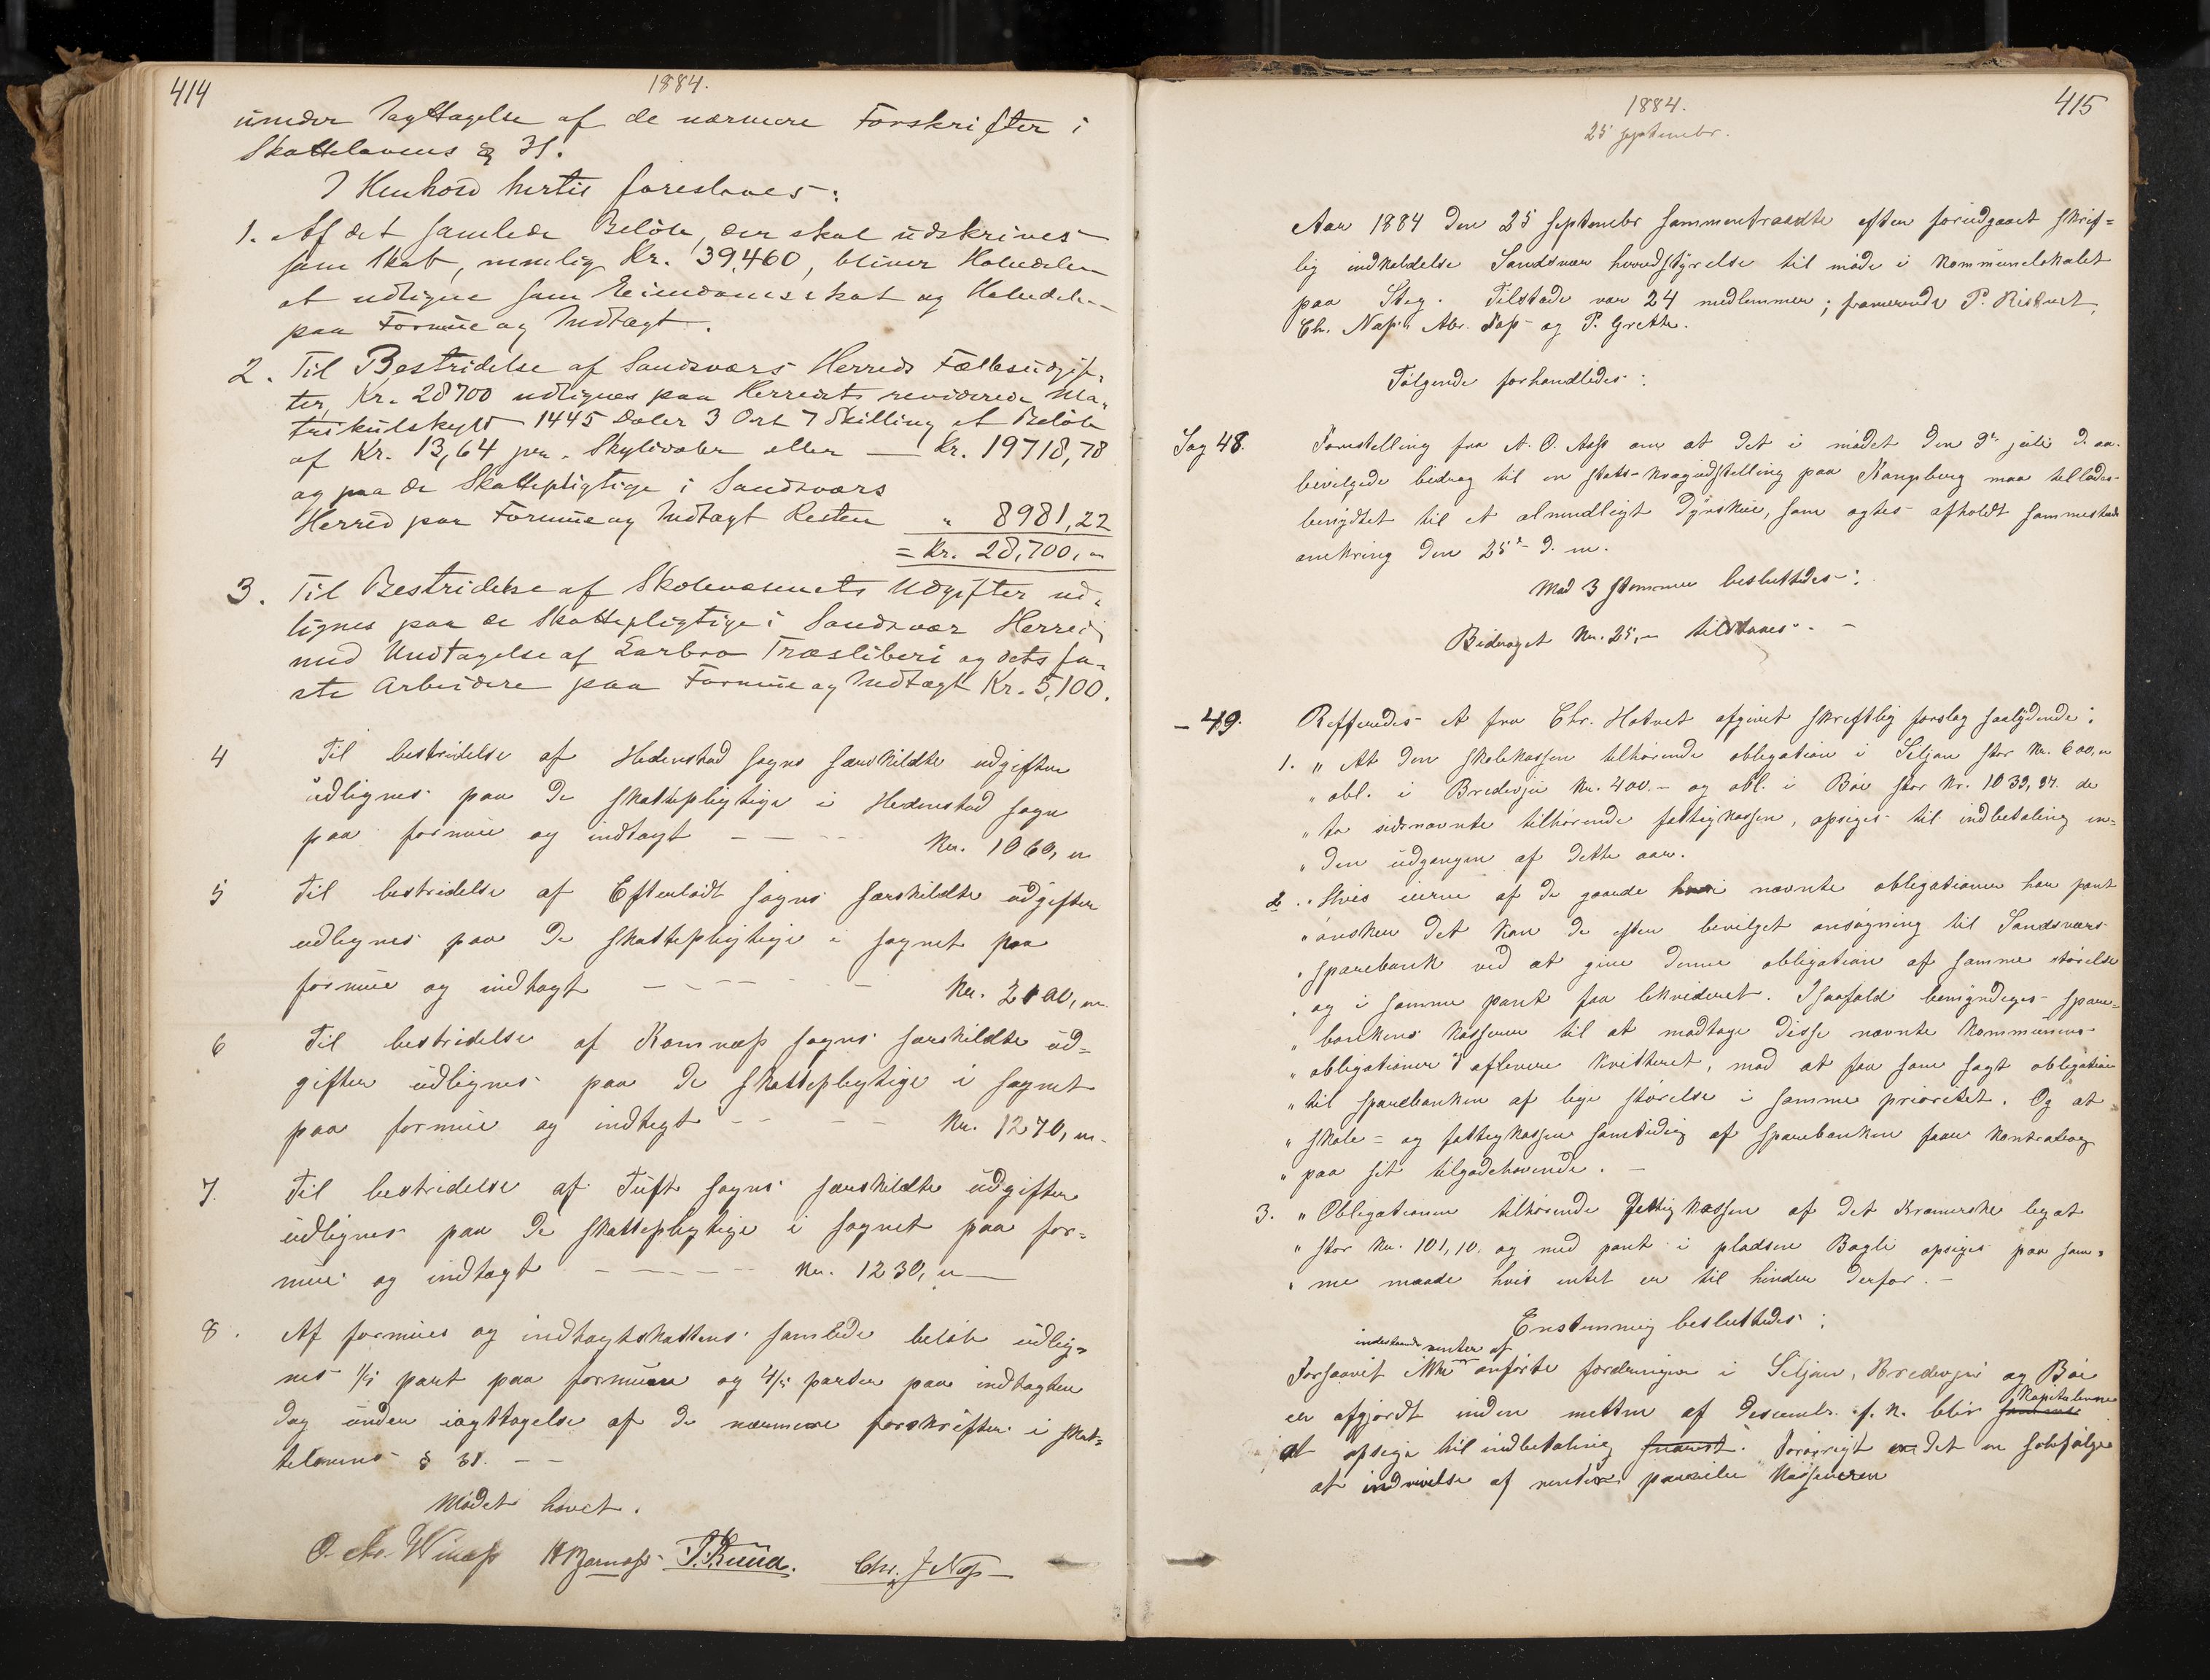 414
1884.
under Iagttagelse af de nærmere Forskrifter i
Skattelovens § 31.
I Henhold hertil foreslaaes:
1. Af det samlede Beløb, der skal udskrives
som Skat, nemlig Kr. 39,460, bliver Halvdelen
at udligne som Eiendomsskat og Halvdelen
paa Formue og Indtægt.
2. Til Bestridelse af Sandsværs Herreds Fællesudgif-
ter, Kr. 28700 udlignes paa Herredets reviderede Ma-
trikulskyld 1445 Daler 3 Ort 7 Skilling et Beløb
af Kr. 13,64 pr. Skylddaler eller — Kr. 19718,78
og paa de Skattepligtige i Sandsværs
Herred paa Formue og Indtægt Resten " 8981,22
= Kr. 28,700,"
3. Til Bestridelse af Skolevæsenets Udgifter ud-
lignes paa de Skattepligtige i Sandsvær Herred
med Undtagelse af Labro Træsliberi og dets fa-
ste Arbeidere paa Formue og Indtægt Kr. 5,100.
4 Til bestridelse af Hedenstad sogns særskildte udgifter
udlignes paa de skattepligtige i Hedenstad sogn
paa formue og indtægt — — — Kr. 1060,"
5 Til bestridelse af Eftelødt sogns særskildte udgifter
udlignes paa de skattepligtige i sognet paa
formue og indtægt — — — — Kr. 2100,"
6 Til bestridelse af Komnæs sogns særskildte ud=
gifter udlignes paa de skattepligtige i sognet
paa formue og indtægt — — — Kr. 1270,"
7. Til bestridelse af Tuft sogns særskildte udgifter
udlignes paa de skattepligtige i sognet paa for=
mue og indtægt — — — — Kr. 1230," —
8. Af formues og indtægtskattens samlede beløb udlig=
nes 1/5 part paa formuen og 4/5 parter paa indtægten
dog under iagttagelse af de nærmere forskrifter i skat=
telovens § 31. — —
Mødet hævet.
Chr. J Næs
415
1884.
25 septembr.
Aar 1884 den 25 septembr sammentraadte efter forudgaaet skrif=
lig indkaldelse Sandsvær herredstyrelse til møde i kommunelokalet
paa Steg. Tilstede var 24 medlemmer; fraværende P.
Chr. Næs, Abr. Næs og P. Grette.
Følgende forhandledes:
Sag 48. Forestilling fra A. O. Aas om at det i mødet den 3die juli d. aa.
bevilgede bidrag til en stats-kvægudstilling paa Kongsberg maa tillades
benyttet til et almindeligt dyrskue, som agtes afholdt sammesteds
omkring den 25de d. m.
Mod 3 stemmer besluttedes:
Bidraget Kr. 25,- tilstaaes. —
— 49. Refferedes et fra Chr. Hotvet afgivet skriftlig forslag saalydende:
1. " At den skolekassen tilhørende obligation i Siljan stor Kr. 600,"
" obl. i Bredesjø Kr. 400.- og obl. i Bøe stor Kr. 1033,34. de
" to sidsnævnte tilhørende fattigkassen, opsiges til indbetaling in=
" den udgangen af dette aar.
2. " Hvis eierne af de gaarde hvori nævnte obligationer har pant
" ønsker det kan de efter bevilget ansøgning til Sandsværs
" sparebank ved at give denne obligation af samme størelse
" og i samme pant faa likvideret. I saafald bemyndiges spare=
" bankens kasserer til at modtage disse nævnte kommunens
" obligationer i aflevere kvitteret, mod at faa som sagt obligation
" til sparebanken af lige størelse i samme prioritet. Og at
" skole- og fattigkassen samtidig af sparebanken faar kontrabog
" paa sit tilgodehavende. —
3. " Obligationen tilhørende fattigkassen af det Kramerske legat
" stor Kr. 101,10. og med pant i pladsen Bagli opsiges paa sam=
" me maade hvis intet er til hinder derfor. —
Enstemmig besluttedes:
indestaaende renter af
Forsaavit ikke anførte fordringer i Siljan, Bredesjø og Bøe
er afgjordt inden midten af decembr. f. k. blir kapitalerne
at opsige til indbetaling snarest. Forøvrigt er det en selvfølge
at inddrivelse af renter paahviler kassereren